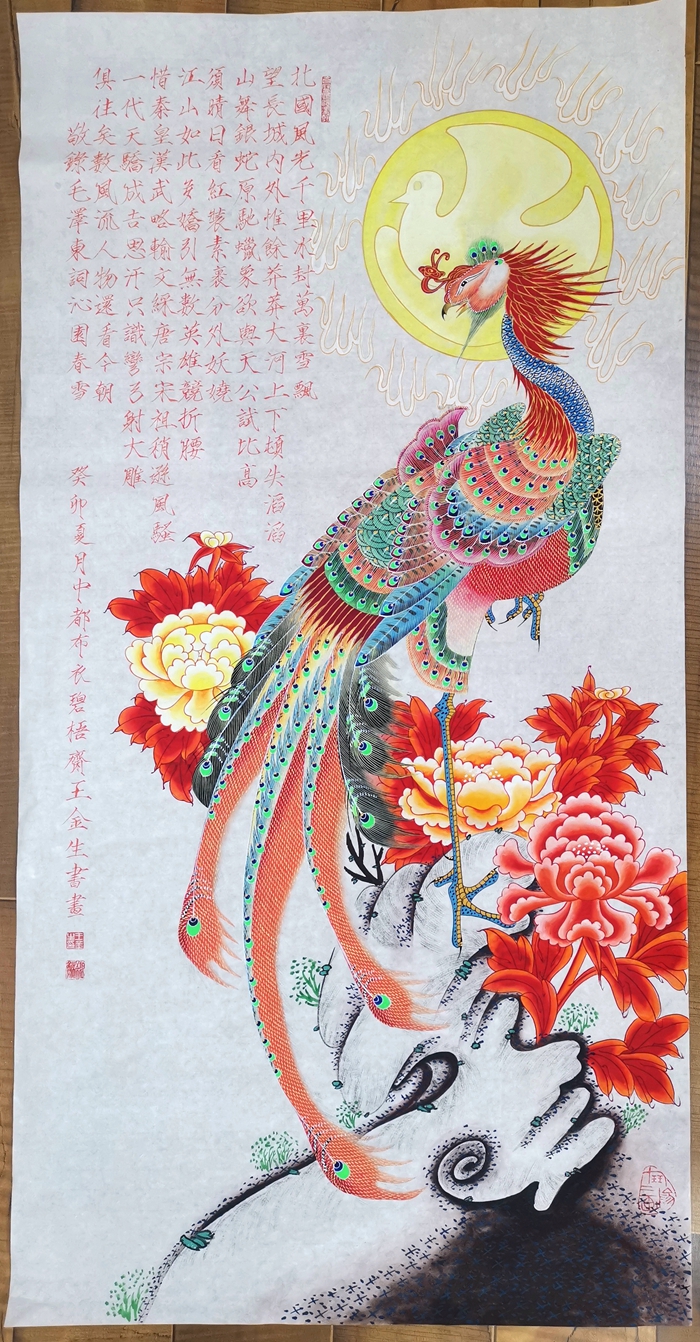 北國風光千里氷封萬裏雪飄
望長城內外惟餘莽莽大河上下頓失滔滔
山舞銀蛇原馳蠟象欲與天公試比高
須晴日看紅裝素裹分外妖嬈
江山如此多嬌引無數英雄競折腰
惜秦皇漢武略輸文綵唐宗宋祖稍遜風騷
一代天驕成吉思汗只識彎弓射大雕
俱往矣數風流人物還看今朝
敬錄毛澤東詞沁園春雪
癸卯夏月中都布衣碧梧齋王金生書畫